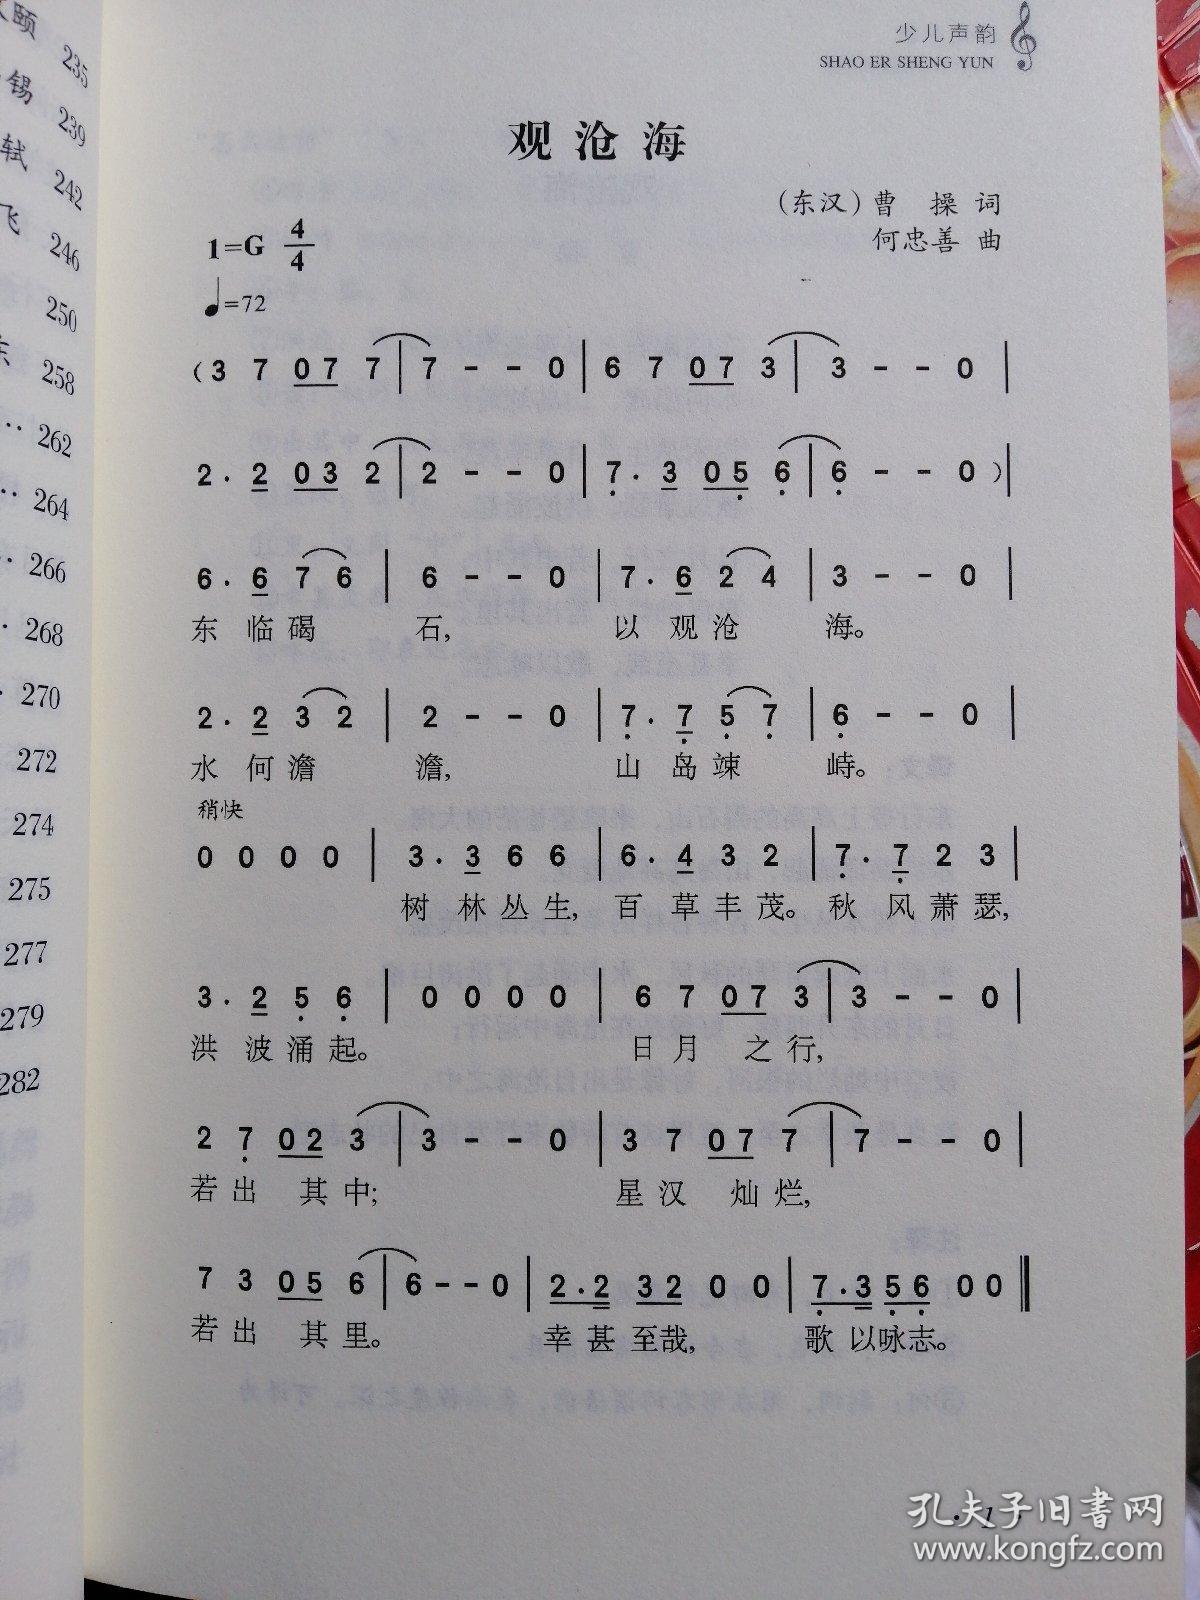 少儿声韵
SHAO ER SHENG YUN
观沧海
(东汉)曹 操 词
何忠善 曲
1=G 4/4
♩=72
(3 7 0 7 7 | 7 - - 0 | 6 7 0 7 3 | 3 - - 0 |
2. 2 0 3 2 | 2 - - 0 | 7. 3 0 5 6 | 6 - - 0 )|
6. 6 7 6 | 6 - - 0 | 7. 6 2 4 | 3 - - 0 |
东 临 碣 石, 以 观 沧 海。
2. 2 3 2 | 2 - - 0 | 7. 7 5 7 | 6 - - 0 |
水 何 澹 澹, 山 岛 竦 峙。
稍快
0 0 0 0 | 3. 3 6 6 | 6. 4 3 2 | 7. 7 2 3 |
树 林 丛 生, 百 草 丰 茂。 秋 风 萧 瑟,
3. 2 5 6 | 0 0 0 0 | 6 7 0 7 3 | 3 - - 0 |
洪 波 涌 起。 日 月 之 行,
2 7 0 2 3 | 3 - - 0 | 3 7 0 7 7 | 7 - - 0 |
若 出 其 中; 星 汉 灿 烂,
7 3 0 5 6 | 6 - - 0 | 2. 2 3 2 0 0 | 7. 3 5 6 0 0 ‖
若 出 其 里。 幸 甚 至 哉, 歌 以 咏 志。
· 1
颐 235
锡 239
轼 242
飞 246
250
258
·· 262
·· 264
· 266
· 268
· 270
272
274
275
277
279
282
孔夫子旧书网
www.kongfz.com